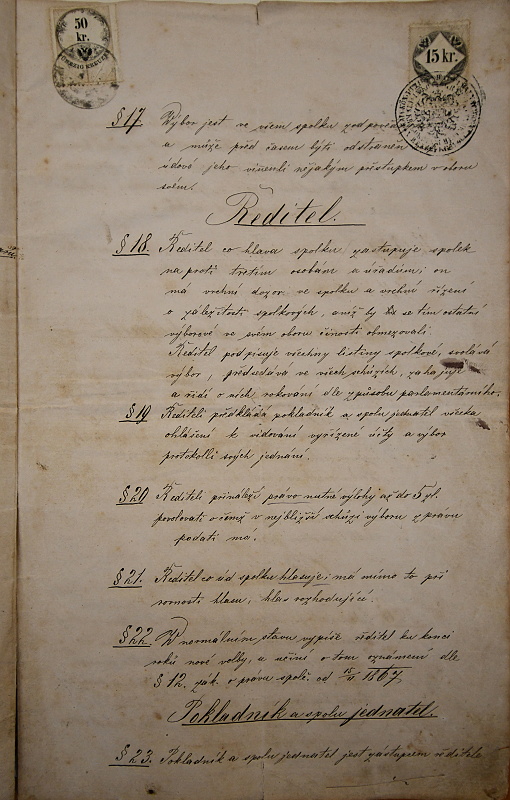 50
kr.
15 kr.
§ 17. Výbor jest ve všem spolku zodpověd
a může před časem býti odstraněn
údové jeho vinenti nějakým přestupkem v oboru
svém.
Ředitel.
§ 18. Ředitel co hlava spolku zastupuje spolek
na proti třetím osobám a úřadům; on
má vrchní dozor ve spolku a vrchní řízení
o záležitosti spolkových, aniž by se tím ostatní
výborové ve svém oboru činosti obmezovali.
Ředitel podpisuje všechny listiny spolkové, svolává
výbor, předsedává ve všech schůzích, zahajuje
a řídí o nich rokování dle způsobu parlamentárního.
§ 19 Řediteli předkládá pokladník a spolu jednatel všecka
ohlášení k vidování vyřízené účty a výbor
protokolli svých jednání.
§ 20 Řediteli přináleží právo nutné výlohy až do 5 zl.
povolovati o čemž v nejbližší schůzi výboru zprávu
podati má.
§ 21. Ředitel co úd spolku hlasuje; má mimo to při
rovnosti hlasu, hlas rozhodující.
§ 22. V normálním stavu vypíše ředitel ku konci
roků nové volby, a učiní o tom oznámení dle
§ 12. zák. o právu spolč. od 15/11 1867.
Pokladník a spolu jednatel.
§ 23. Pokladník a spolu jednatel jest zástupcem ředitele